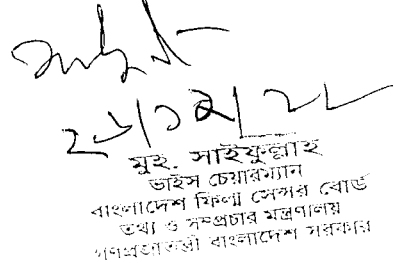 ২৬/১২/২২
মুহ. সাইফুল্লাহ
ভাইস চেয়ারম্যান
বাংলাদেশ ফিল্ম সেন্সর বোর্ড
তথ্য ও সম্প্রচার মন্ত্রণালয়
গণপ্রজাতন্ত্রী বাংলাদেশ সরকার